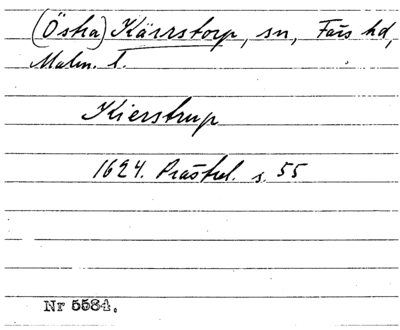 (Östra) Kärrstorp, sn, Färs hd,
Malm. l.
Kierstrup
1624. Prästrel. s. 55
Nr 5584.